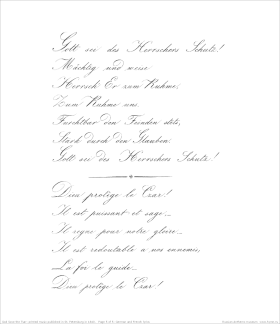 Gott sei des Herrschers Schutz!
Mächtig und weise
Herrsch Er zum Ruhme,
Zum Ruhme uns.
Furchtbar den Feinden stets,
Stark durch den Glauben.
Gott sei des Herrschers Schutz!
Dieu protège le Czar!
Il est puissant et sage_
Il règne pour notre gloire_
Il est redoutable à nos ennemis,
La foi le guide_
Dieu protège le Czar!